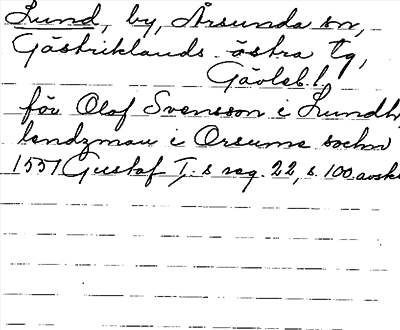 Lund, by, Årsunda sn,
Gästriklands östra tg,
Gävleb.l.
för Olof Svensson i Lundh,
landzman i Orsunna sochn
1551 Gustaf I,:s reg. 22, s. 100. avskr